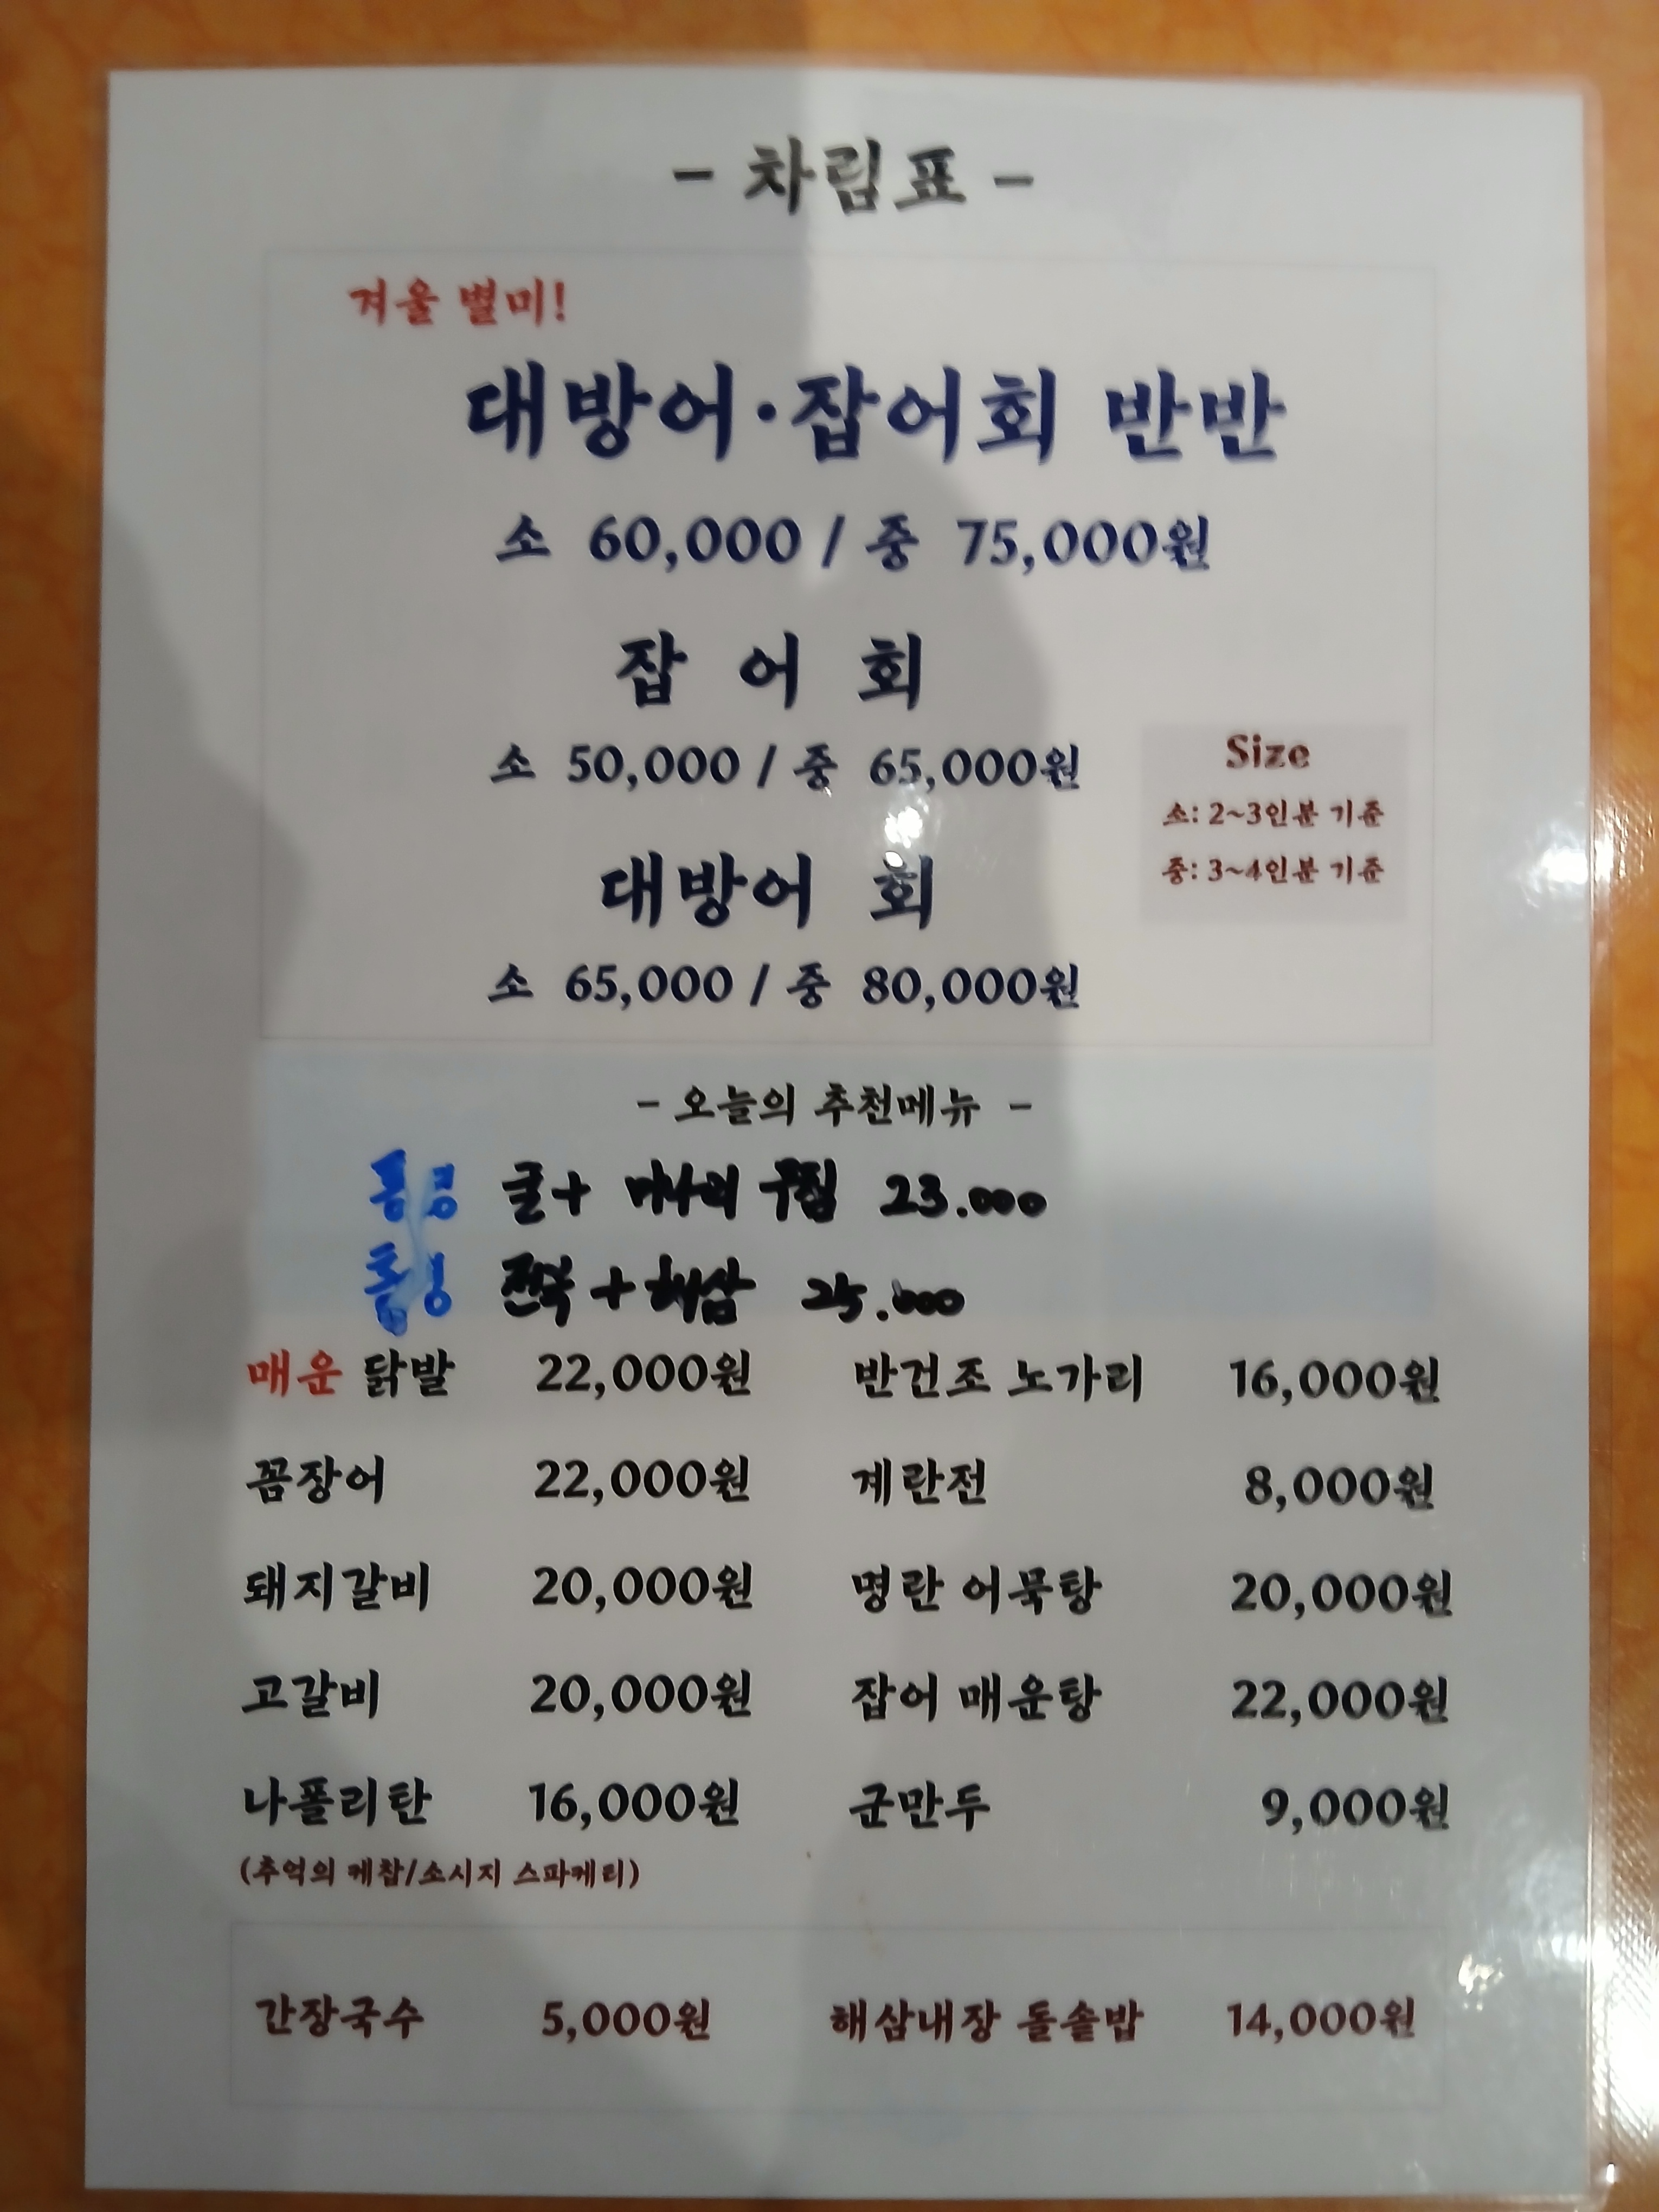 - 차림표 -
겨울 별미!
대방어·잡어회 반반
소 60,000 / 중 75,000원
잡 어 회
소 50,000 / 중 65,000원
Size
소: 2~3인분 기준
중: 3~4인분 기준
대방어 회
소 65,000 / 중 80,000원
- 오늘의 추천메뉴 -
통영 굴+ 미나리 무침 23.000
통영 전복+해삼 25.000
매운 닭발 22,000원 반건조 노가리 16,000원
꼼장어 22,000원 계란전 8,000원
돼지갈비 20,000원 명란 어묵탕 20,000원
고갈비 20,000원 잡어 매운탕 22,000원
나폴리탄 16,000원 군만두 9,000원
(추억의 케찹/소시지 스파게티)
간장국수 5,000원 해삼내장 돌솥밥 14,000원